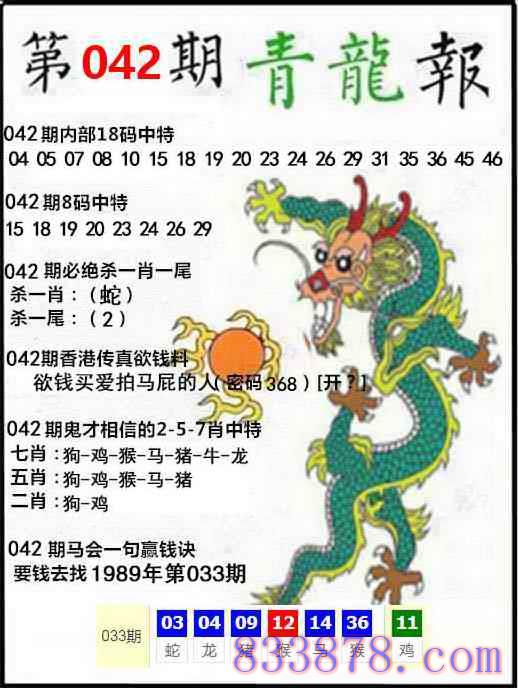 第042期青龍報
042期内部18码中特
04 05 07 08 10 15 18 19 20 23 24 26 29 31 35 36 45 46
042期8码中特
15 18 19 20 23 24 26 29
042 期必绝杀一肖一尾
杀一肖：（蛇）
杀一尾：（2）
042期香港传真欲钱料
欲钱买爱拍马屁的人(密码368)[开？]
042期鬼才相信的2-5-7肖中特
七肖：狗-鸡-猴-马-猪-牛-龙
五肖：狗-鸡-猴-马-猪
二肖：狗-鸡
042 期马会一句赢钱诀
要钱去找1989年第033期
033期 03 04 09 12 14 36 11
蛇 龙 猪 猴 马 猴 鸡
833878.com